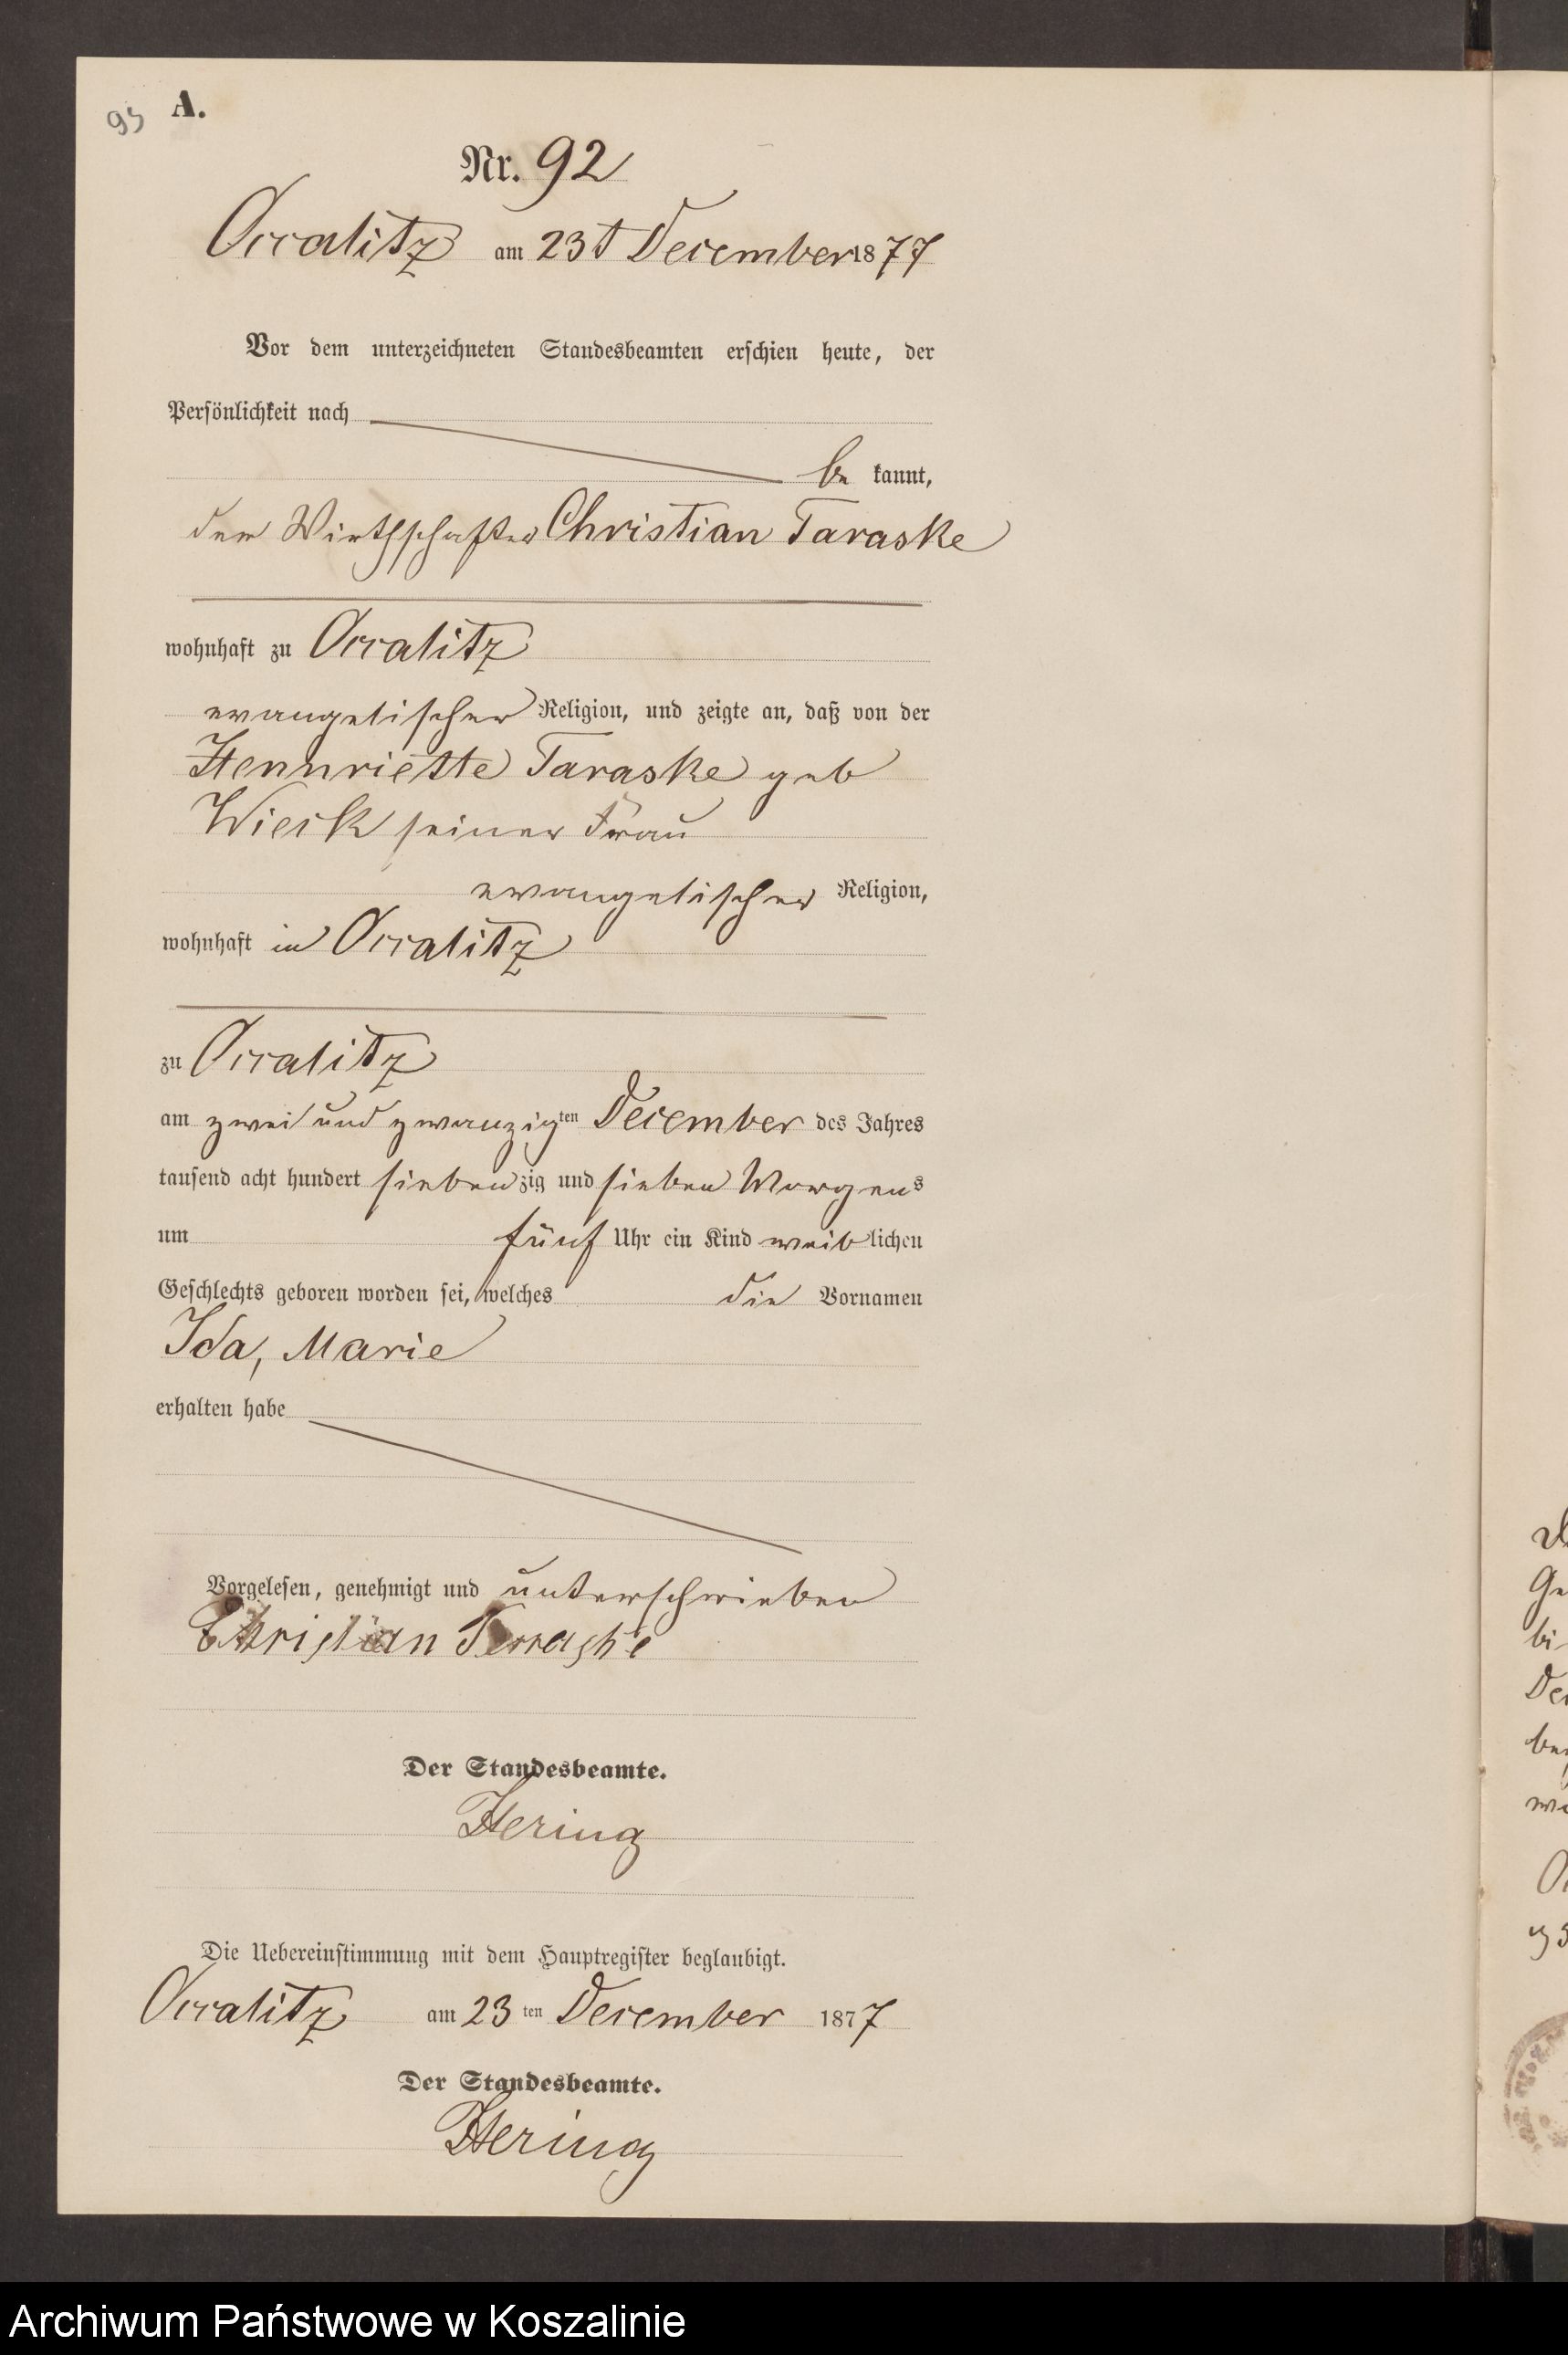 95 A.
Nr. 92
Occalitz am 23t December 1877
Vor dem unterzeichneten Standesbeamten erschien heute, der
Persönlichkeit nach
be kannt,
der Wirthschafter Christian Taraske
wohnhaft zu Occalitz
evangelischer Religion, und zeigte an, daß von der
Hennriette Taraske geb
Wieck seiner Frau
evangelischer Religion,
wohnhaft in Occalitz
zu Occalitz
am zwei und zwanzigten December des Jahres
tausend acht hundert siebenzig und sieben Morgens
um fünf Uhr ein Kind weiblichen
Geschlechts geboren worden sei, welches die Vornamen
Ida, Marie
erhalten habe
Vorgelesen, genehmigt und unterschrieben
Christian
Der Standesbeamte.
Hering
Die Uebereinstimmung mit dem Hauptregister beglaubigt.
Occalitz am 23ten December 1877
Der Standesbeamte.
Hering
Archiwum Państwowe w Koszalinie